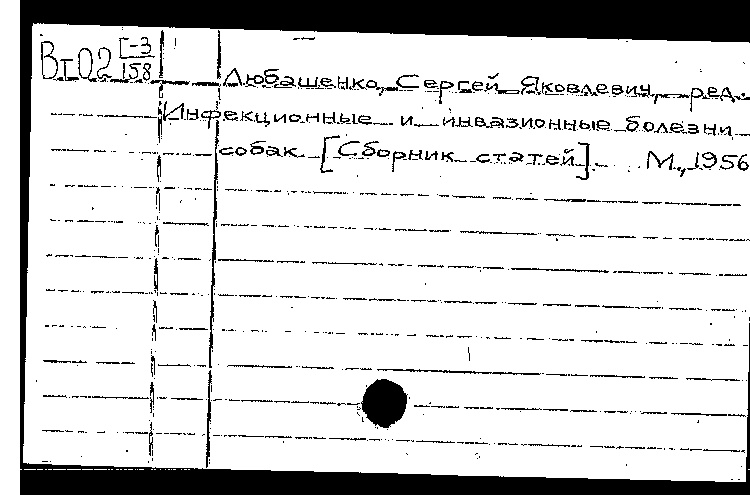 Вт02 Г-3
158
Любашенко, Сергей Яковлевич, ред.
Инфекционные и инвазионные болезни
собак [Сборник статей]. М., 1956